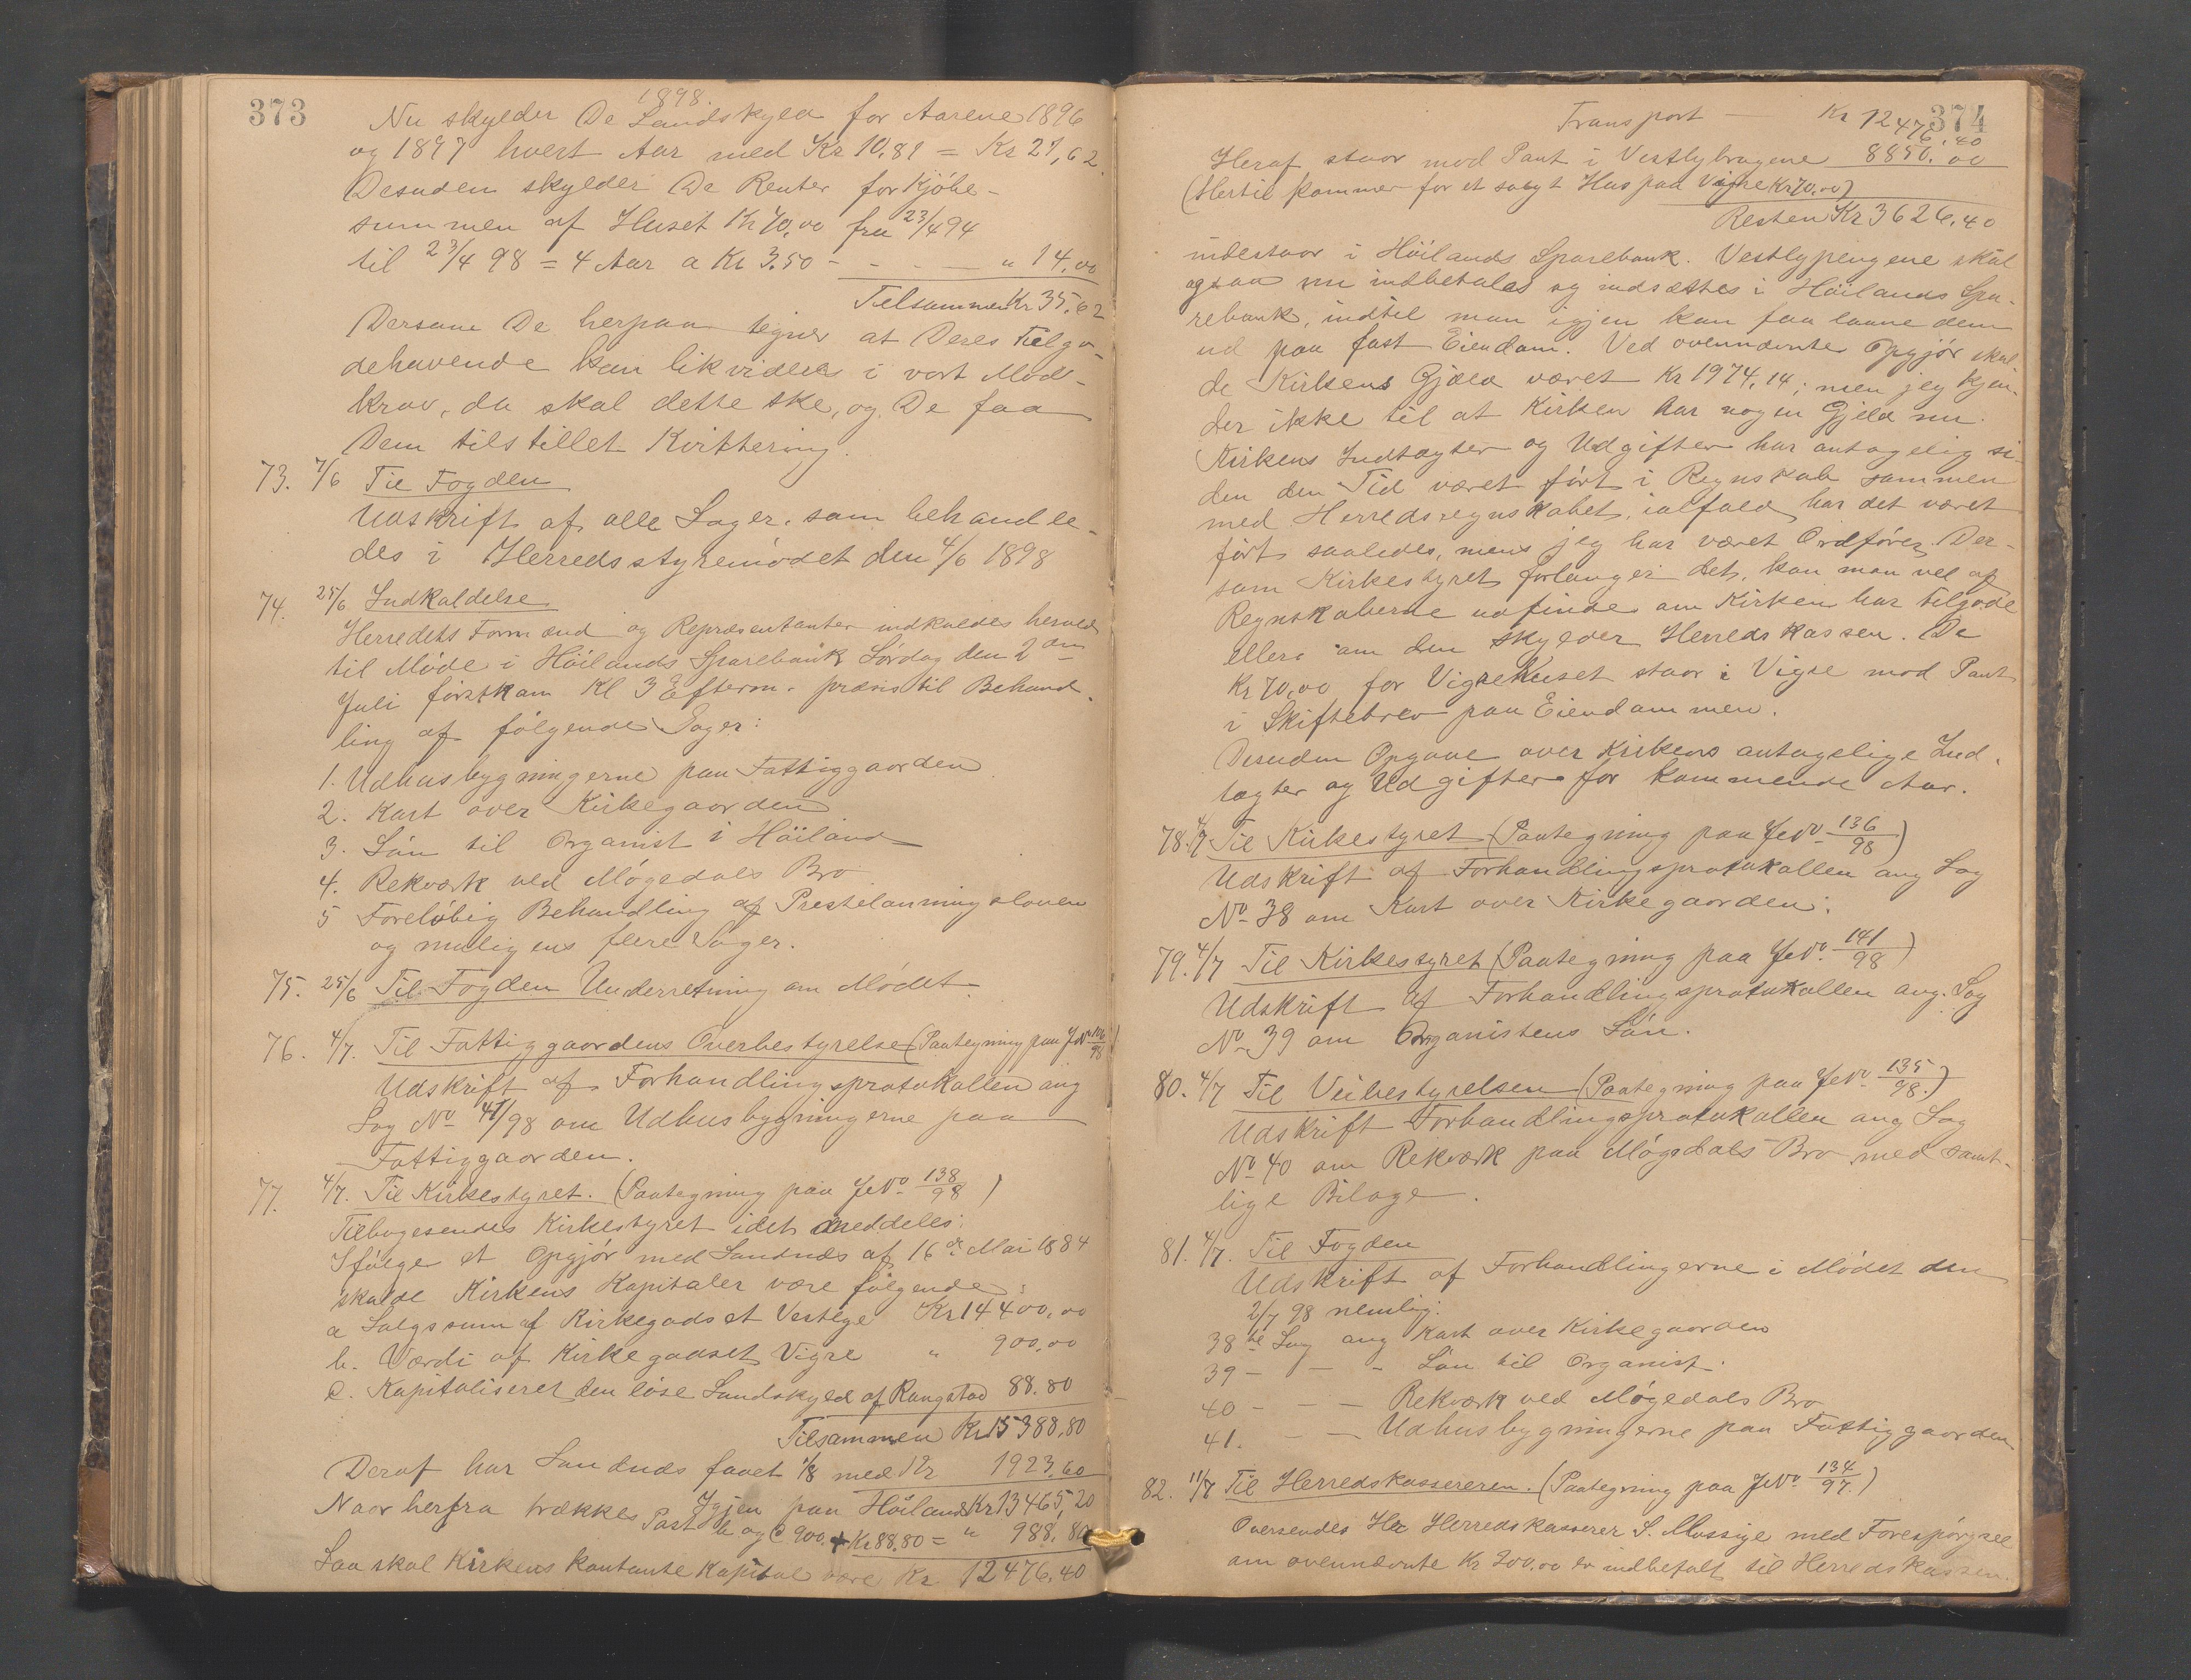 373
1898.
Nu skylder De Landskyld for Aarene 1896
og 1897 hvert Aar med Kr 10.81 = Kr 21,62
Desuden skylder De Renter for Kjöbe-
summen af Huset Kr 70.00 fra 23/4 94
til 23/4 98 = 4 Aar a Kr 3.50 - - - — " 14,00
Tilsammen Kr 35,62
Dersom De herpaa tegner at Deres Tilgo-
dehavende kan likvideres i vort Mod-
krav, da skal dette ske, og De faa
Dem tilstillet Kvittering.
73. 7/6 Til Fogden
Udskrift af alle Sager, som behandle-
des i Herredsstyremödet den 4/6 1898
74. 25/6 Indkaldelse
Herredets Formænd og Repræsentanter indkaldes herved
til Möde i Höilands Sparebank Lördag den 2den
Juli förstkom Kl 3 Efterm. præsis til Behand-
ling af fölgende Sager:
1. Udhusbygningerne paa Fattiggaarden
2. Kart over Kirkegaarden
3. Lön til Organist i Höiland
4. Rekværk ved Mögedals Bro
5 Forelöbig Behandling af Prestelönningsloven
og muligens flere Sager.
75. 25/6 Til Fogden Underretning om Mödet.
76. 4/7. Til Fattiggaardens Overbestyrelse (Paategning paa JNo 126/98)
Udskrift af Forhandlingsprotokollen ang
Sag No 41/98 om Udhusbygningerne paa
Fattiggaarden.
77. 4/7. Til Kirkestyret. (Paategning paa JNo 138/98)
Tilbagesendes Kirkestyret idet meddeles:
Ifölge et Opgjör med Sandnæs af 16de Mai 1884
skulde Kirkens Kapitaler være fölgende:
a Salgssum af Kirkegodset Vestlye Kr 14400,00
b. Værdi af Kirkegodset Vigre " 900,00
c. Kapitaliseret den löse Landskyld af Rangstad 88.80
Tilsammen Kr 15388,80
Deraf har Sandnæs faaet 1/8 med Kr 1923,60
Igjen paa Höiland Kr 13465,20
Naar herfra trækkes Post b og c 900. + Kr 88.80 = " 988,80
Saa skal Kirkens kontante Kapital være Kr 12476,40
374
Transport — Kr 12476,40
Heraf staar mod Pant i Vestlybrugene 8850.00
(Hertil kommer for et solgt Hus paa Vigre Kr 70.00)
Resten Kr 3626,40
indestaar i Höilands Sparebank. Vestlypengene skal
ogsaa nu indbetales og indsættes i Höilands Spa-
rebank, indtil man igjen kan faa laane dem
ud paa fast Eiendom. Ved ovennævnte Opgjör skul-
de Kirkens Gjæld været Kr 1974,14; men jeg kjen-
der ikke til at Kirken har nogen Gjeld nu.
Kirkens Indtægter og Udgifter har antagelig si-
den den Tid været fört i Regnskab sammen
med Herredsregnskabet, ialfald har det været
fört saaledes, mens jeg har været Ordförer. Der-
som Kirkestyret forlanger det, kan man vel af
Regnskaberne udfinde om Kirken har tilgode
eller om den skylder Herredskassen. De
Kr 70,00 for Vigrehuset staar i Vigre mod Pant
i Skiftebrev paa Eiendommen.
Desuden Opgave over Kirkens antagelige Ind-
tægter og Udgifter for kommende Aar.
78. 4/7 Til Kirkestyret (Paategning paa JNo 136/98)
Udskrift af Forhandlingsprotokollen ang Sag
No 38 om Kart over Kirkegaarden.
79. 4/7 Til Kirkestyret (Paategning paa JNo 141/98)
Udskrift af Forhandlingsprotokollen ang. Sag
No 39 om Organistens Lön.
80. 4/7 Til Veibestyrelsen (Paategning paa JNo 135/98.)
Udskrift Forhandlingsprotokollen ang Sag
No 40 om Rekværk paa Mögedals Bro med samt-
lige Bilage.
81. 4/7. Til Fogden
Udskrift af Forhandlingerne i Mödet den
2/7 98 nemlig:
38te Sag ang Kart over Kirkegaarden
39 - — - Lön til Organist.
40 - — — Rekværk ved Mögedals Bro
41. — — Udhusbygningerne paa Fattiggaarden
82. 11/7 Til Herredskassereren. (Paategning paa JNo 134/97.)
Oversendes Hr Herredskasserer S. Mossige med Forespörgsel
om ovennævnte Kr 200,00 er indbetalt til Herredskassen.